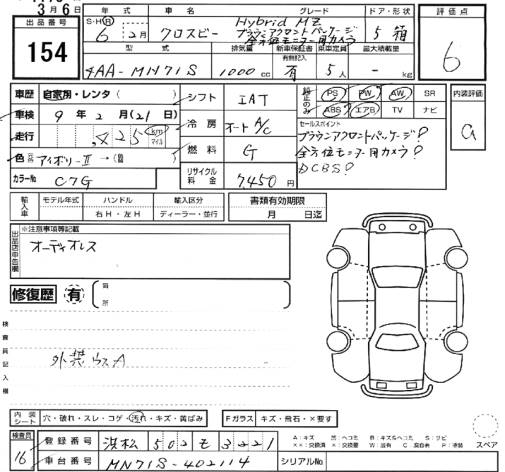 3月6日
出品番号
154
年式 車名 グレード ドア・形状
S・H・R 6年2月 クロスビー Hybrid MZ
ブラウンアクセントパッケージ
全方位モニター用カメラ 5 箱
型式 排気量 新車保証書 乗車定員 最大積載量
有無記入
4AA-MN71S 1000cc 有 5人 - kg
評価点
6
車歴 自家用・レンタ( )
車検 9年2月(21)日
走行 825 km マイル
色 元色 アイボリー-Ⅱ →(
カラーNo C7G
シフト IAT
冷房 オート A/C
燃料 G
リサイクル料金 7450円
純正のみ PS PW AW SR
ABS エアB TV ナビ
セールスポイント
ブラウンアクセントパッケージ?
全方位モニター用カメラ?
DCBS?
内装評価
輸入車 モデル年式 ハンドル 輸入区分
右H・左H ディーラー・並行
書類有効期限
月 日迄
出品店申告欄
※注意事項等記載
オーディオレス
修復歴 有
箇所
検査員記入欄
外装ウスA
内装シート 穴・破れ・スレ・コゲ・汚れ・キズ・黄ばみ
Fガラス キズ・飛石・×要す
検査員
16
登録番号 浜松 502 モ 3221
車台番号 MN71S-402114
シリアルNo
スペア